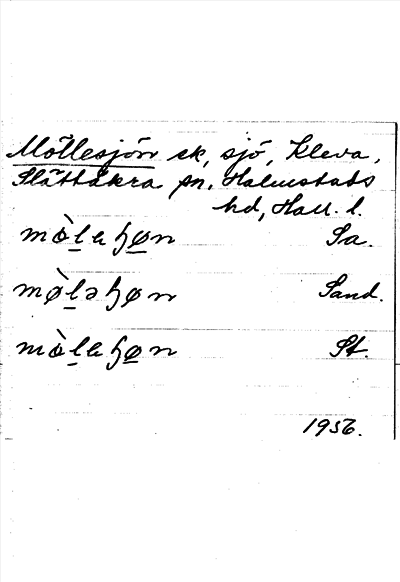 Möllesjön ek, sjö, Kleva,
Slättåkra sn, Halmstads
hd, Hall. l.
mø̀laɧøn Sa.
mø̀ləɧøn Sand.
mø̀laɧøn St.
1956.